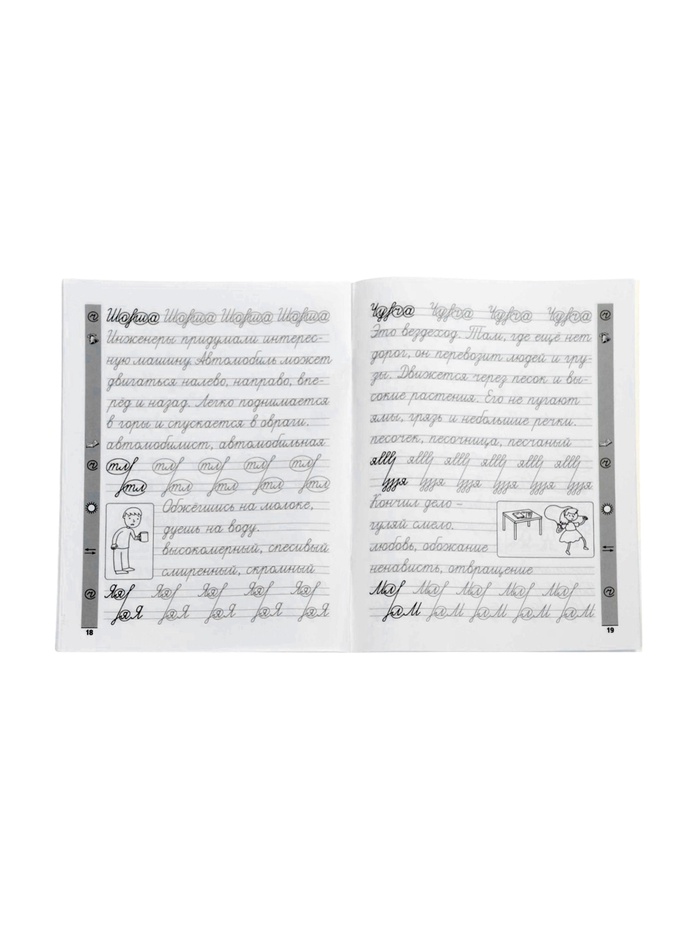 Инженеры придумали интерес-
ную машину. Автомобиль может
двигаться налево, направо, впе-
рёд и назад. Легко поднимается
в горы и спускается в овраги.
автомобилист, автомобильная
тл тл тл тл тл
тл тл тл тл тл
Обжёгшись на молоке,
дуешь на воду.
высокомерный, спесивый
смиренный, скромный
18
Это вездеход. Там, где ещё нет
дорог, он перевозит людей и гру-
зы. Движется через песок и вы-
сокие растения. Его не пугают
ямы, грязь и небольшие речки.
песочек, песочница, песчаный
Кончил дело –
гуляй смело.
любовь, обожание
ненависть, отвращение
19